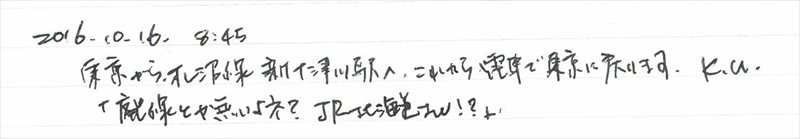 2016.10.16. 8:45
東京から、札沼線 新十津川駅へ、これから電車で東京に戻ります. K.U.
「廃線とか無いよネ? JR北海道さん!?」